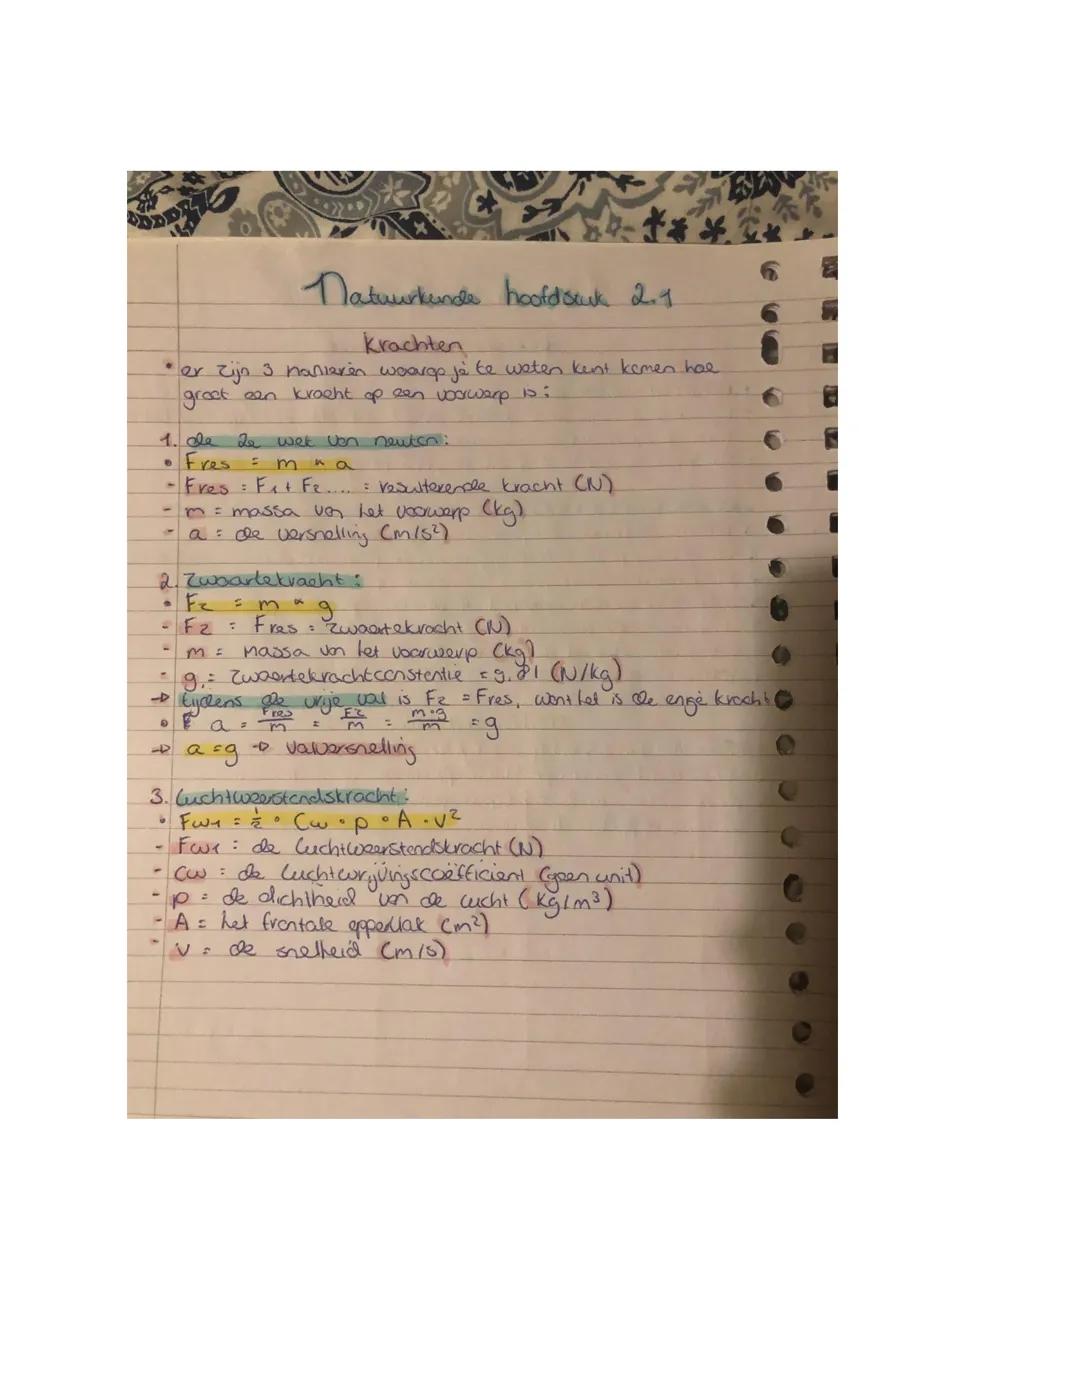 Natuurkunde hoofdstuk 2.1
Krachten
• er zijn 3 manieren waarop je te weten kunt komen hoe
groot een kracht op een voorwerp is:
1. de 2e wet van newton:
• Fres = m × a
- Fres = F1 + F2 .... = resulterende kracht (N)
- m = massa van het voorwerp (kg)
- a = de versnelling (m/s²)
2. Zwaartekracht:
• Fz = m × g
- Fz = Fres = zwaartekracht (N)
- m = massa van het voorwerp (kg)
- g = zwaartekrachtconstantie = 9.81 (N/kg)
→ tijdens de vrije val is Fz = Fres, want het is de enige kracht
• a = Fres/m = Fz/m = m·g/m = g
→ a = g → valversnelling
3. Luchtweerstandskracht:
• Fw1 = ½ · Cw · p · A · v²
- Fw1 = de luchtweerstandskracht (N)
- Cw = de luchtwrijvingscoëfficient (geen unit)
- p = de dichtheid van de lucht (kg/m³)
- A = het frontale opperlak (m²)
- v = de snelheid (m/s)